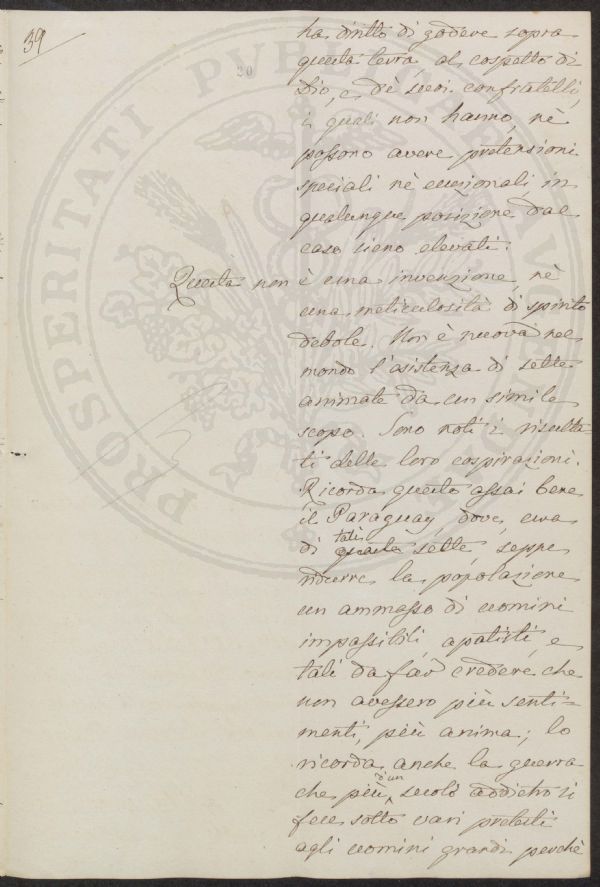 39
20
ha diritto di godere sopra
questa terra, al cospetto di
Dio, e de' suoi confratelli,
i quali non hanno, nè
possono avere pretensioni
speciali nè eccezionali in
qualunque posizione dal
caso sieno elevati.
Questa non è una invenzione, nè
una meticulosità di spirito
debole. Non è nuova nel
mondo l'esistenza di sette
animate da un simile
scopo. Sono noti i risulta
ti delle loro cospirazioni.
Ricorda questo assai bene
il Paraguay, dove, una
di tali sette, seppe
ridurre la popolazione
un ammasso di uomini
impassibili, apatisti, e
tali da far credere che
non avessero più senti=
menti, più anima; lo
ricorda anche la guerra
che più d'un secolo addietro si
fece sotto vari pretesti
agli uomini grandi perchè
PROSPERITATI PUBLICAE